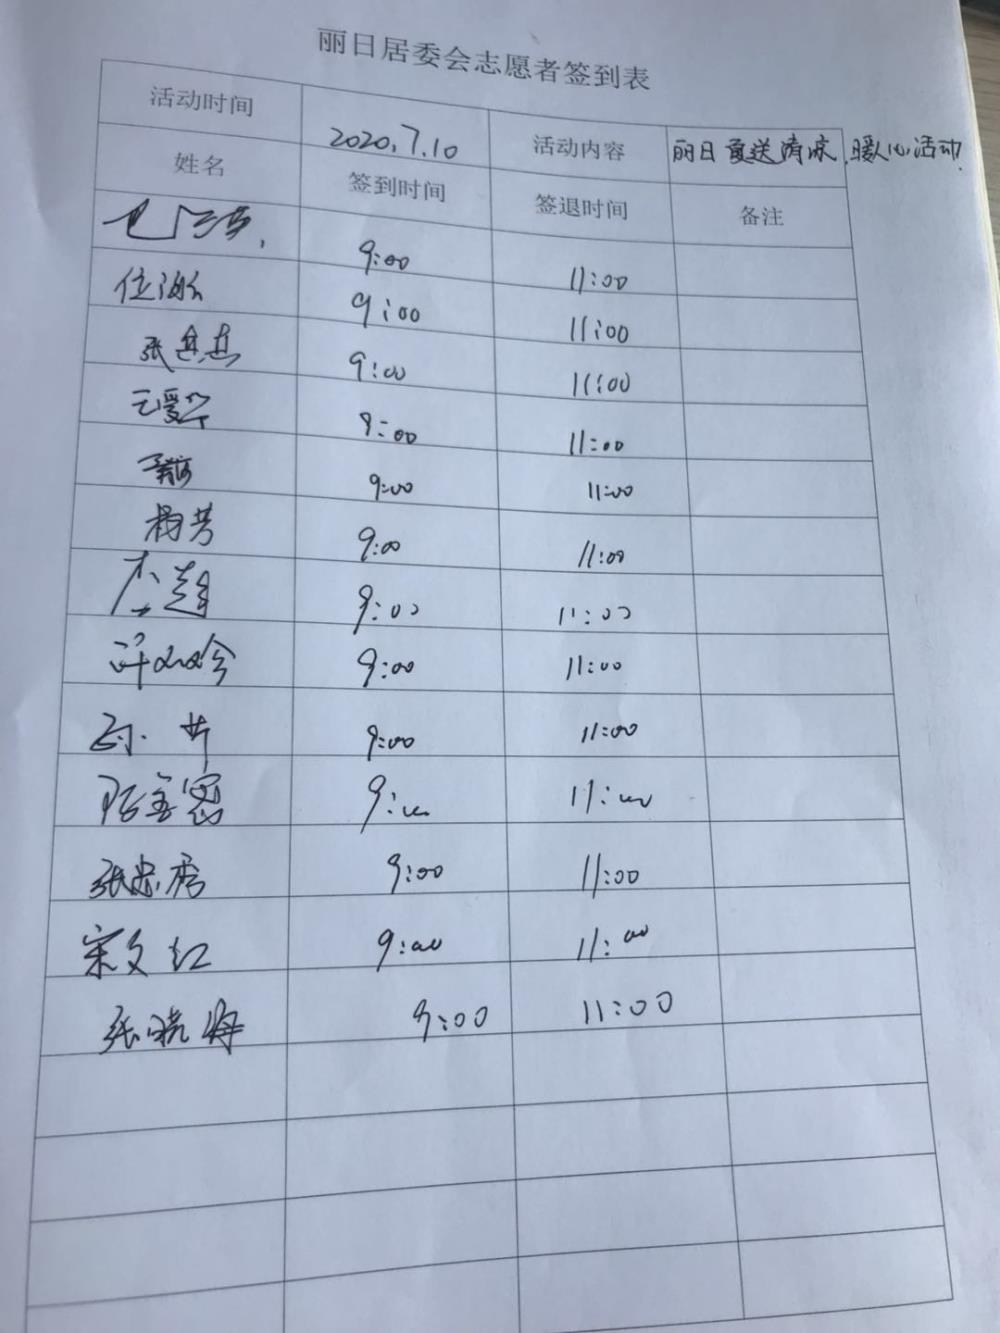 丽日居委会志愿者签到表
活动时间 2020.7.10 活动内容 丽日夏送清凉,暖人心活动
姓名 签到时间 签退时间 备注
9:00 11:00
9:00 11:00
张 9:00 11:00
9:00 11:00
9:00 11:00
杨芳 9:00 11:00
9:00 11:00
9:00 11:00
9:00 11:00
9:00 11:00
张忠 9:00 11:00
宋文红 9:00 11:00
张晓 9:00 11:00